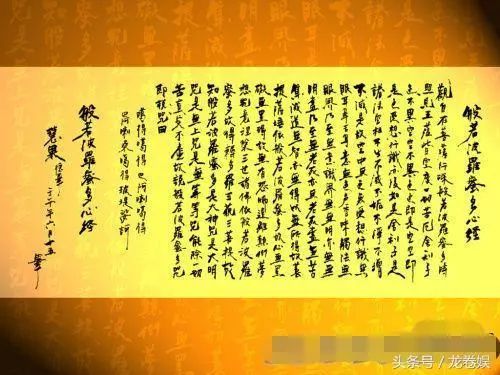 般若波羅蜜多心經
觀自在菩薩行深般若波羅蜜多時
照見五蘊皆空度一切苦厄舍利子
色不異空空不異色色即是空空即
是色受想行識亦復如是舍利子是
諸法空相不生不滅不垢不淨不增
不減是故空中無色無受想行識無
眼耳鼻舌身意無色聲香味觸法無
眼界乃至無意識界無無明亦無無
明盡乃至無老死亦無老死盡無苦
集滅道無智亦無得以無所得故菩
提薩埵依般若波羅蜜多故心無罣
礙無罣礙故無有恐怖遠離顛倒夢
想究竟涅槃三世諸佛依般若波羅
蜜多故得阿耨多羅三藐三菩提故
知般若波羅蜜多是大神咒是大明
咒是無上咒是無等等咒能除一切
苦真實不虛故說般若波羅蜜多咒
即說咒曰
般若波羅蜜多心經
六月十五
头条号／龙卷娱